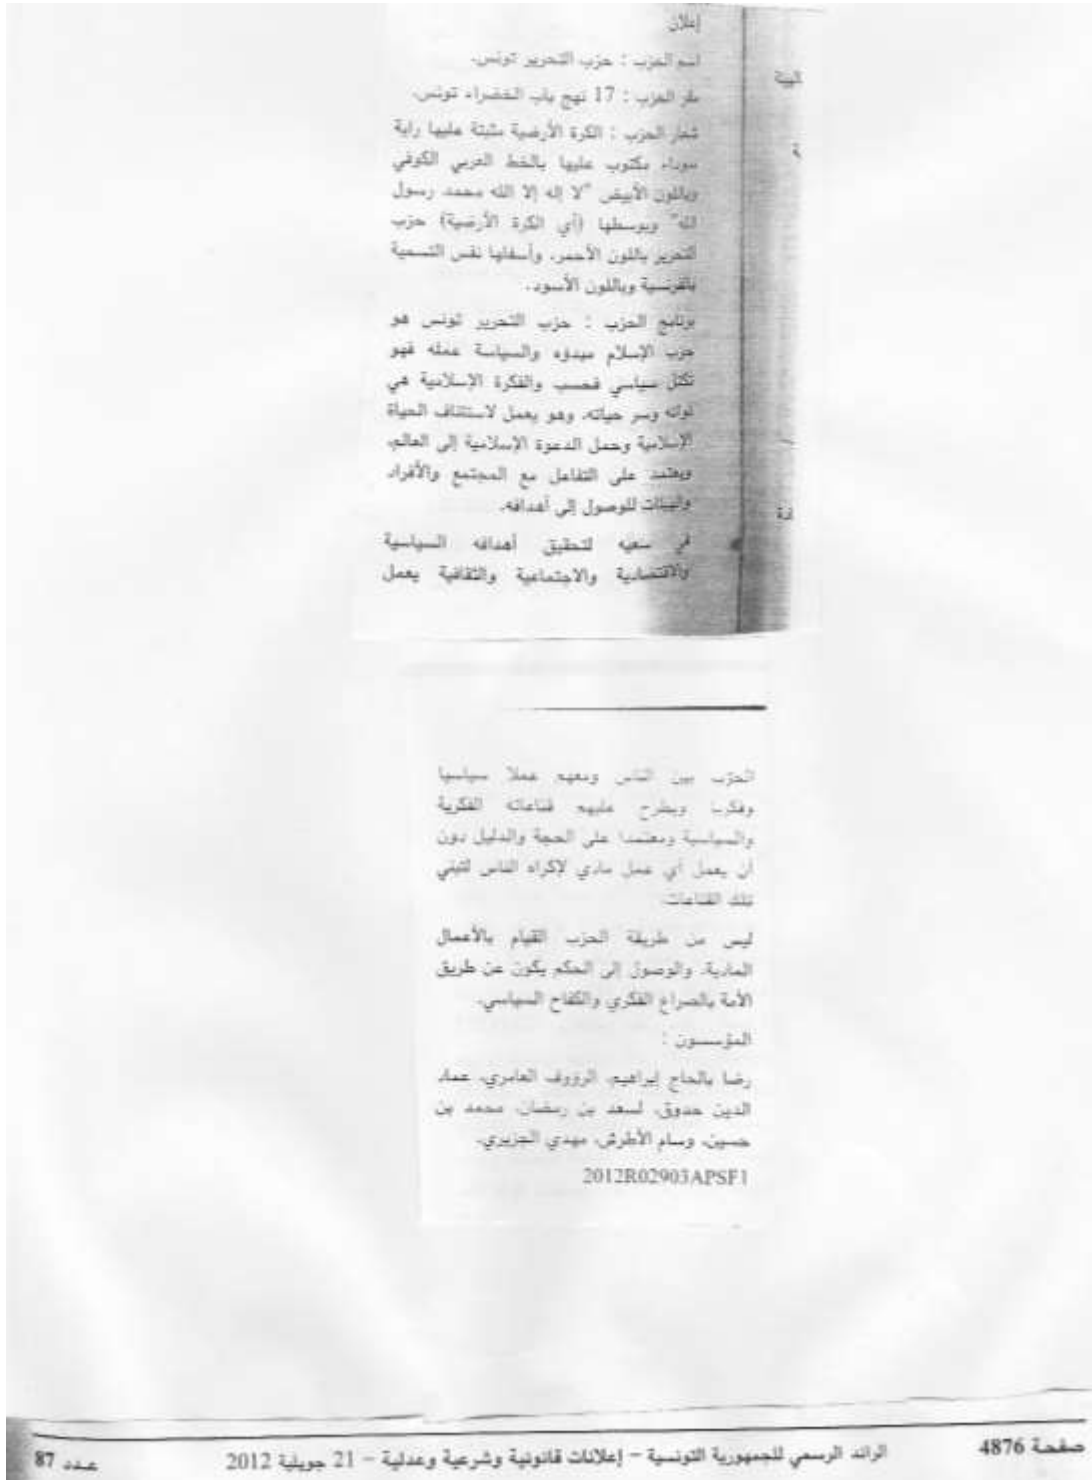 إعلان
اسم الحزب : حزب التحرير تونس.
مقر الحزب : 17 نهج باب الخضراء تونس.
شعار الحزب : الكرة الأرضية مثبتة عليها راية
سوداء مكتوب عليها بالخط العربي الكوفي
وباللون الأبيض "لا إله إلا الله محمد رسول
الله" وبوسطها (أي الكرة الأرضية) حزب
التحرير باللون الأحمر، وأسفلها نفس التسمية
بالفرنسية وباللون الأسود.
برنامج الحزب : حزب التحرير تونس هو
حزب الإسلام مبدؤه والسياسة عمله فهو
تكتل سياسي فحسب والفكرة الإسلامية هي
نواته وسر حياته، وهو يعمل لاستئناف الحياة
الإسلامية وحمل الدعوة الإسلامية إلى العالم،
ويعتمد على التفاعل مع المجتمع والأفراد
والهيئات للوصول إلى أهدافه.
في سعيه لتحقيق أهدافه السياسية
والاقتصادية والاجتماعية والثقافية يعمل
الحزب بين الناس ومعهم عملا سياسيا
وفكريا ويطرح عليهم قناعاته الفكرية
والسياسية ومعتمدا على الحجة والدليل دون
أن يعمل أي عمل مادي لإكراه الناس لتبني
تلك القناعات.
ليس من طريقة الحزب القيام بالأعمال
المادية، والوصول إلى الحكم يكون عن طريق
الأمة بالصراع الفكري والكفاح السياسي.
المؤسسون :
رضا بالحاج إبراهيم، الرؤوف العامري، عماد
الدين حدوق، لسعد بن رمضان، محمد بن
حسين، وسام الأطرش، مهدي الجزيري.
2012R02903APSF1
صفحة 4876 الرائد الرسمي للجمهورية التونسية – إعلانات قانونية وشرعية وعدلية – 21 جويلية 2012 عدد 87